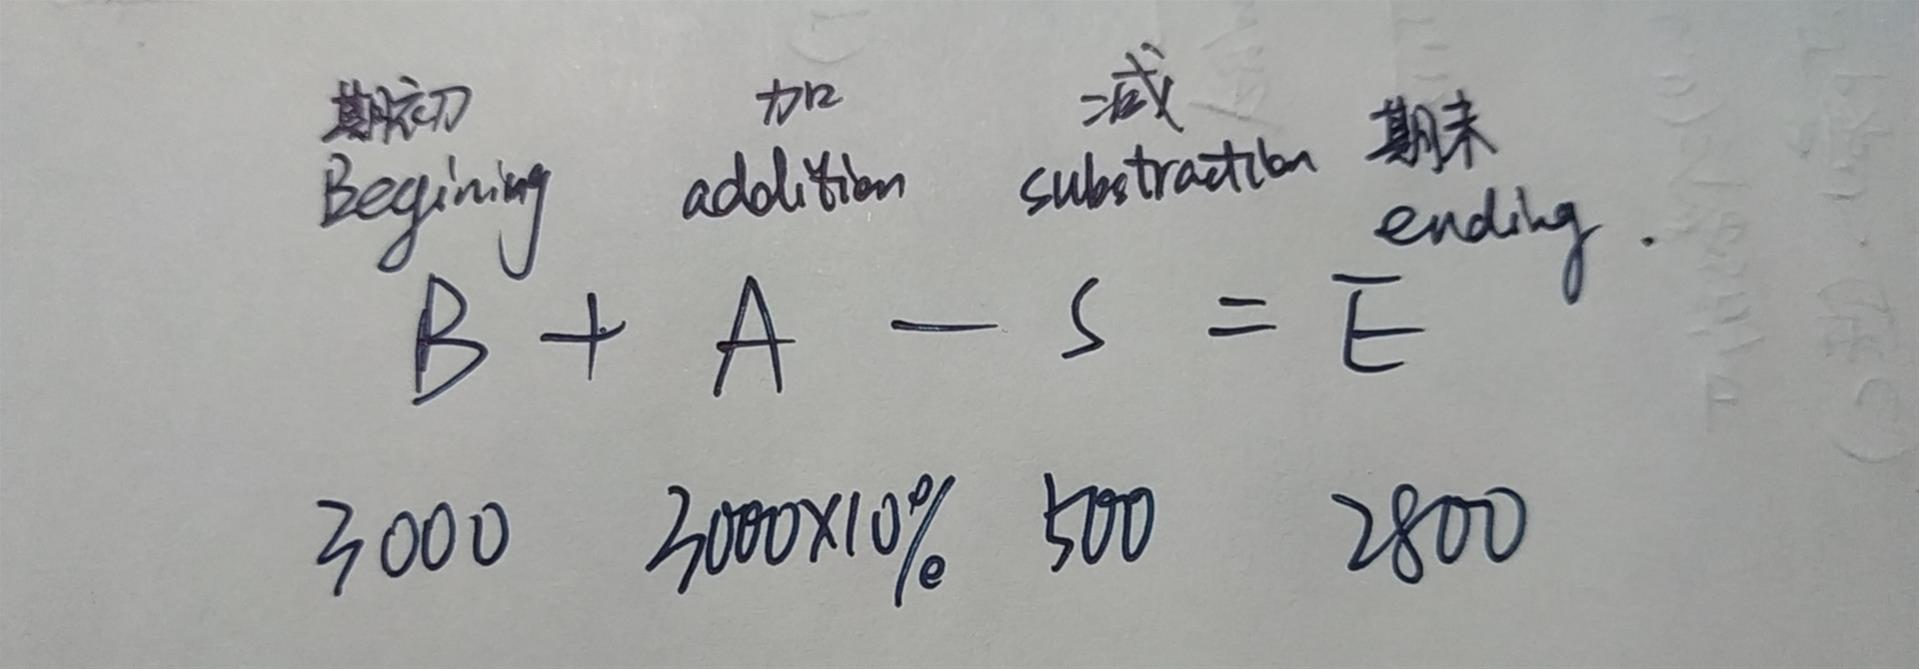 期初 加 减 期末
Begining addition substraction ending.
B + A — S = E
3000 3000×10% 500 2800